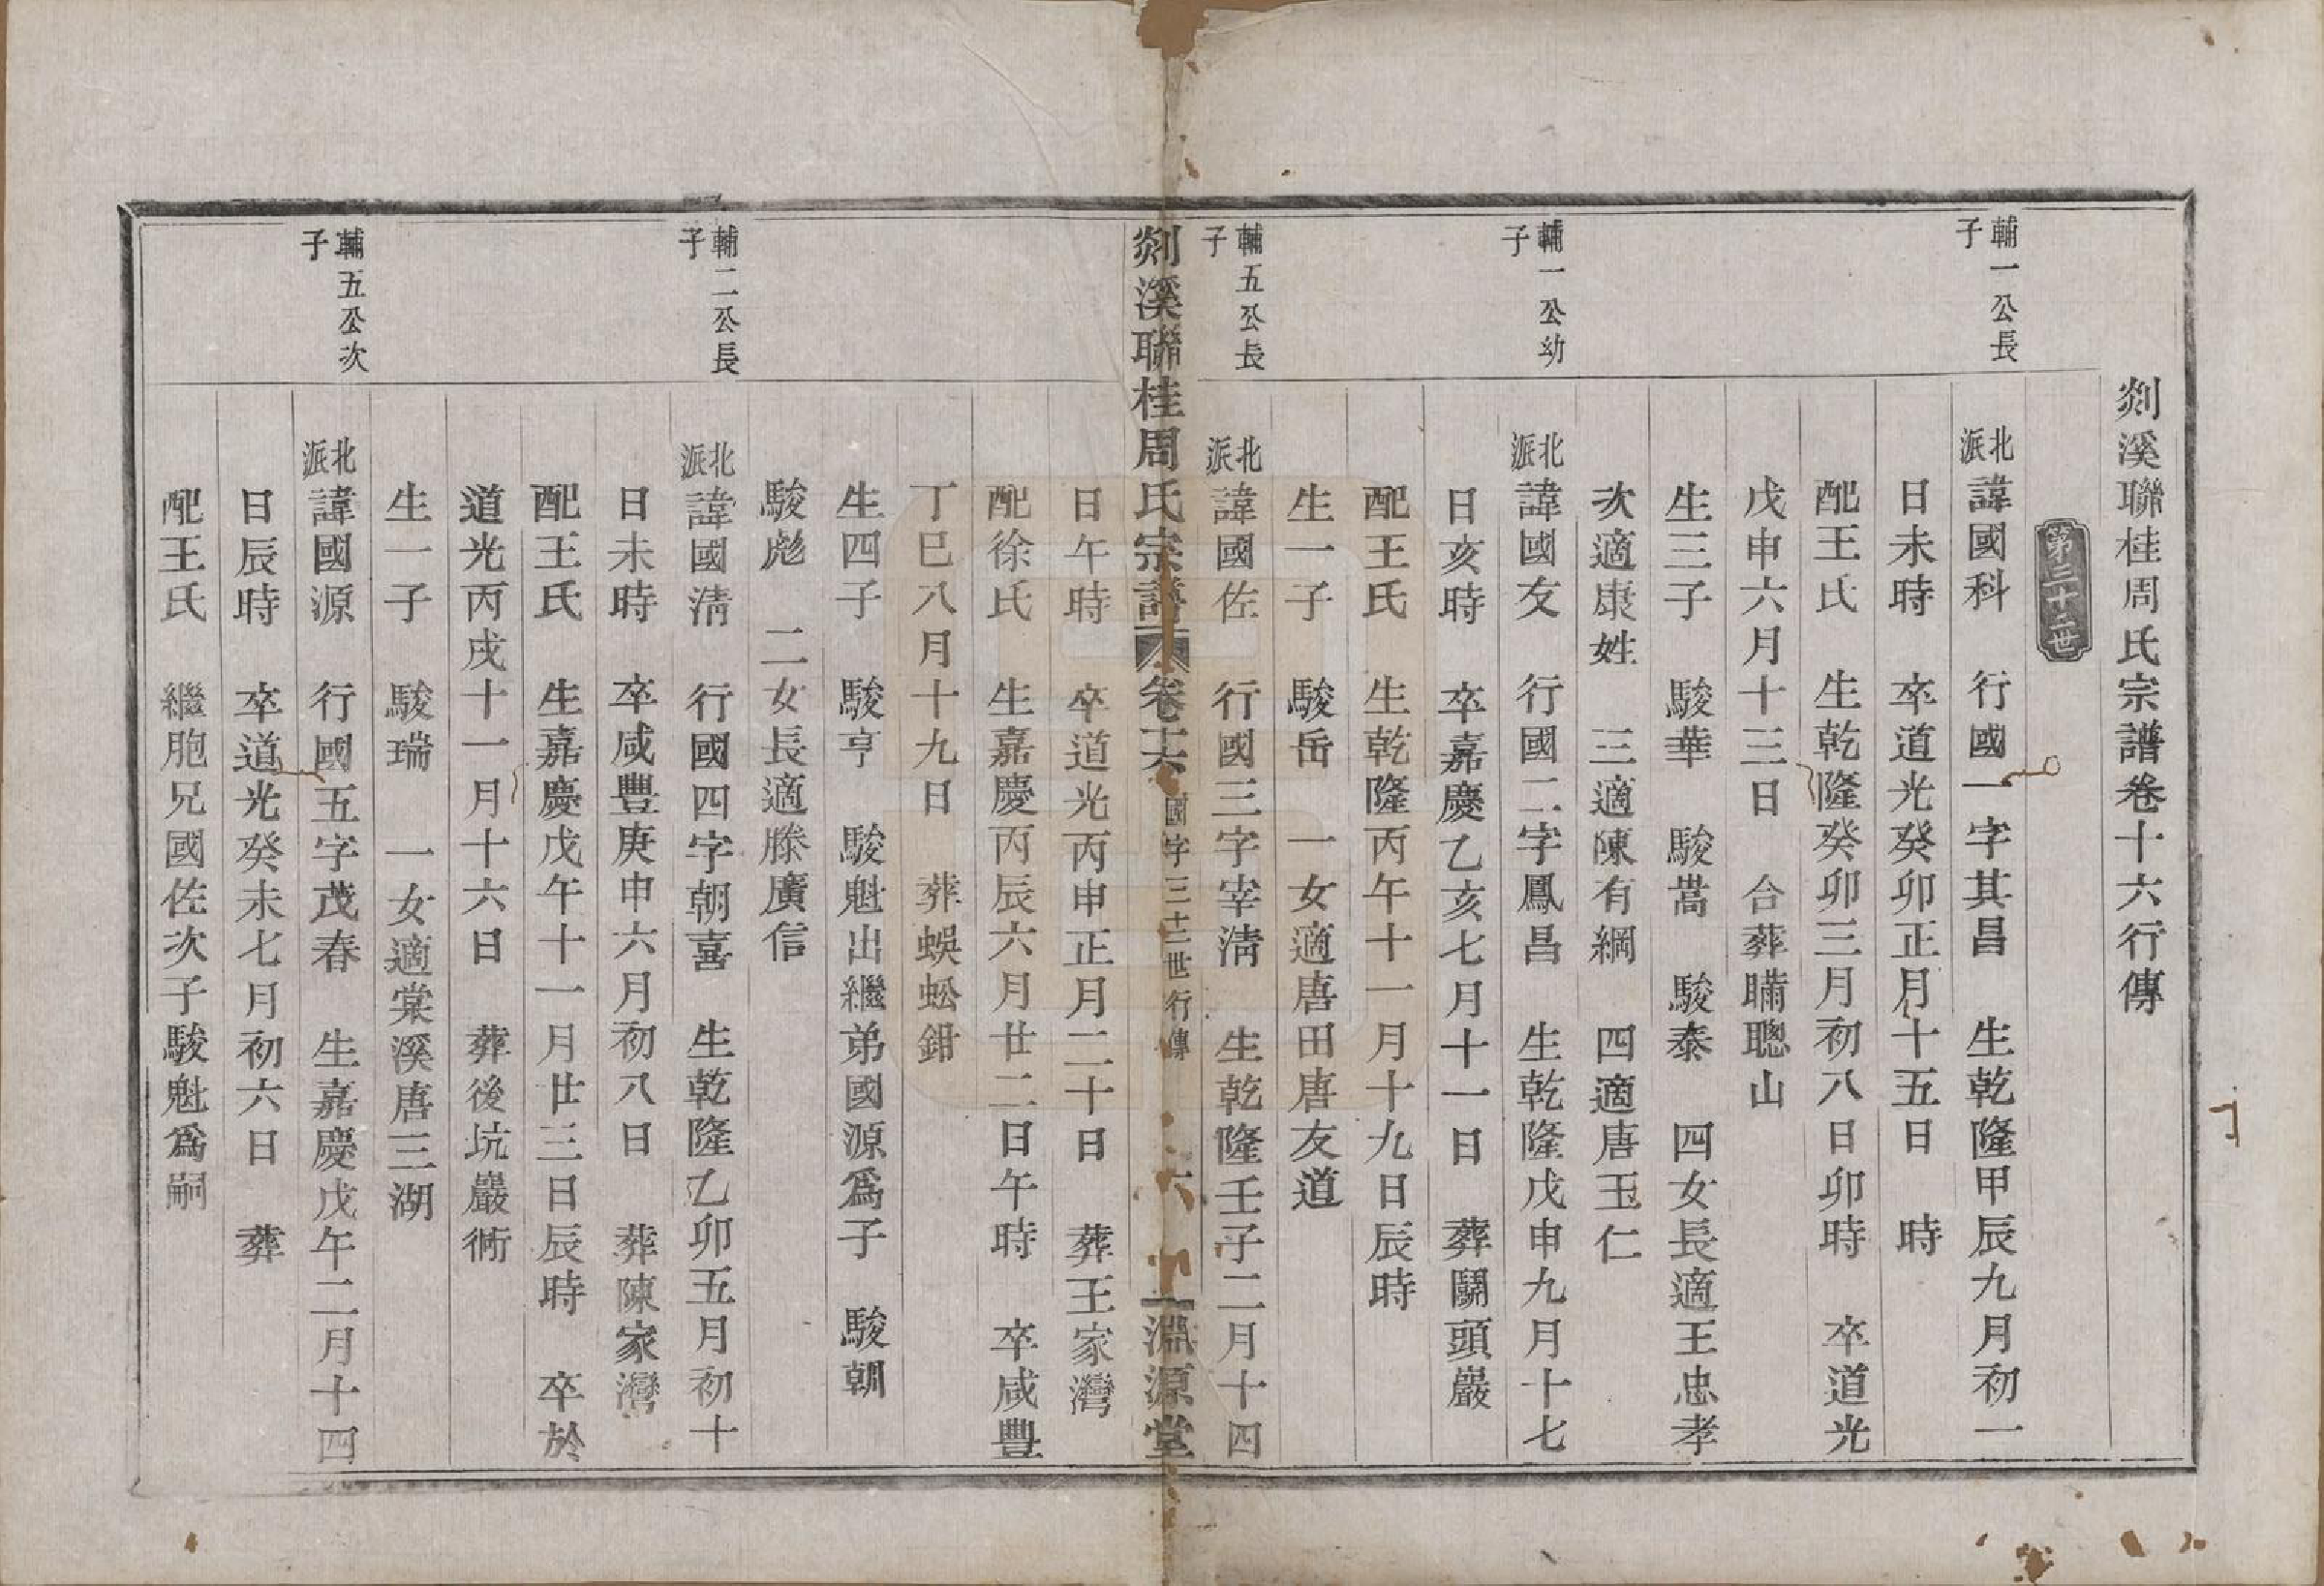 剡溪聯桂周氏宗譜卷十六行傳
第三十二世
輔一公長子
北派諱國科 行國一字其昌 生乾隆甲辰九月初一
日未時 卒道光癸卯正月十五日 時
配王氏 生乾隆癸卯三月初八日卯時 卒道光
戊申六月十三日 合葬聃聰山
生三子 駿華 駿嵩 駿泰 四女長適王忠孝
次適康姓 三適陳有綱 四適唐玉仁
輔一公幼子
北派諱國友 行國二字鳳昌 生乾隆戊申九月十七
日亥時 卒嘉慶乙亥七月十一日 葬關頭巖
配王氏 生乾隆丙午十一月十九日辰時
生一子 駿岳 一女適唐田唐友道
輔五公長子
北派諱國佐 行國三字宰淸 生乾隆壬子二月十四
剡溪聯桂周氏宗譜 卷十六 國字三十二世行傳 六 淵源堂
日午時 卒道光丙申正月二十日 葬王家灣
配徐氏 生嘉慶丙辰六月廿二日午時 卒咸豐
丁巳八月十九日 葬蜈蚣鉗
生四子 駿亨 駿魁出繼弟國源爲子 駿朝
駿彪 二女長適滕廣信
輔二公長子
北派諱國淸 行國四字朝喜 生乾隆乙卯五月初十
日未時 卒咸豐庚申六月初八日 葬陳家灣
配王氏 生嘉慶戊午十一月廿三日辰時 卒於
道光丙戌十一月十六日 葬後坑巖衕
生一子 駿瑞 一女適棠溪唐三湖
輔五公次子
北派諱國源 行國五字茂春 生嘉慶戊午二月十四
日辰時 卒道光癸未七月初六日 葬
配王氏 繼胞兄國佐次子駿魁爲嗣